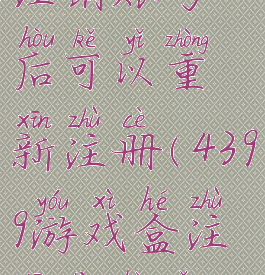 hòu kě yǐ zhòng
后可以重
xīn zhù cè
新注册(439
yóu xì hé zhù
9游戏盒注